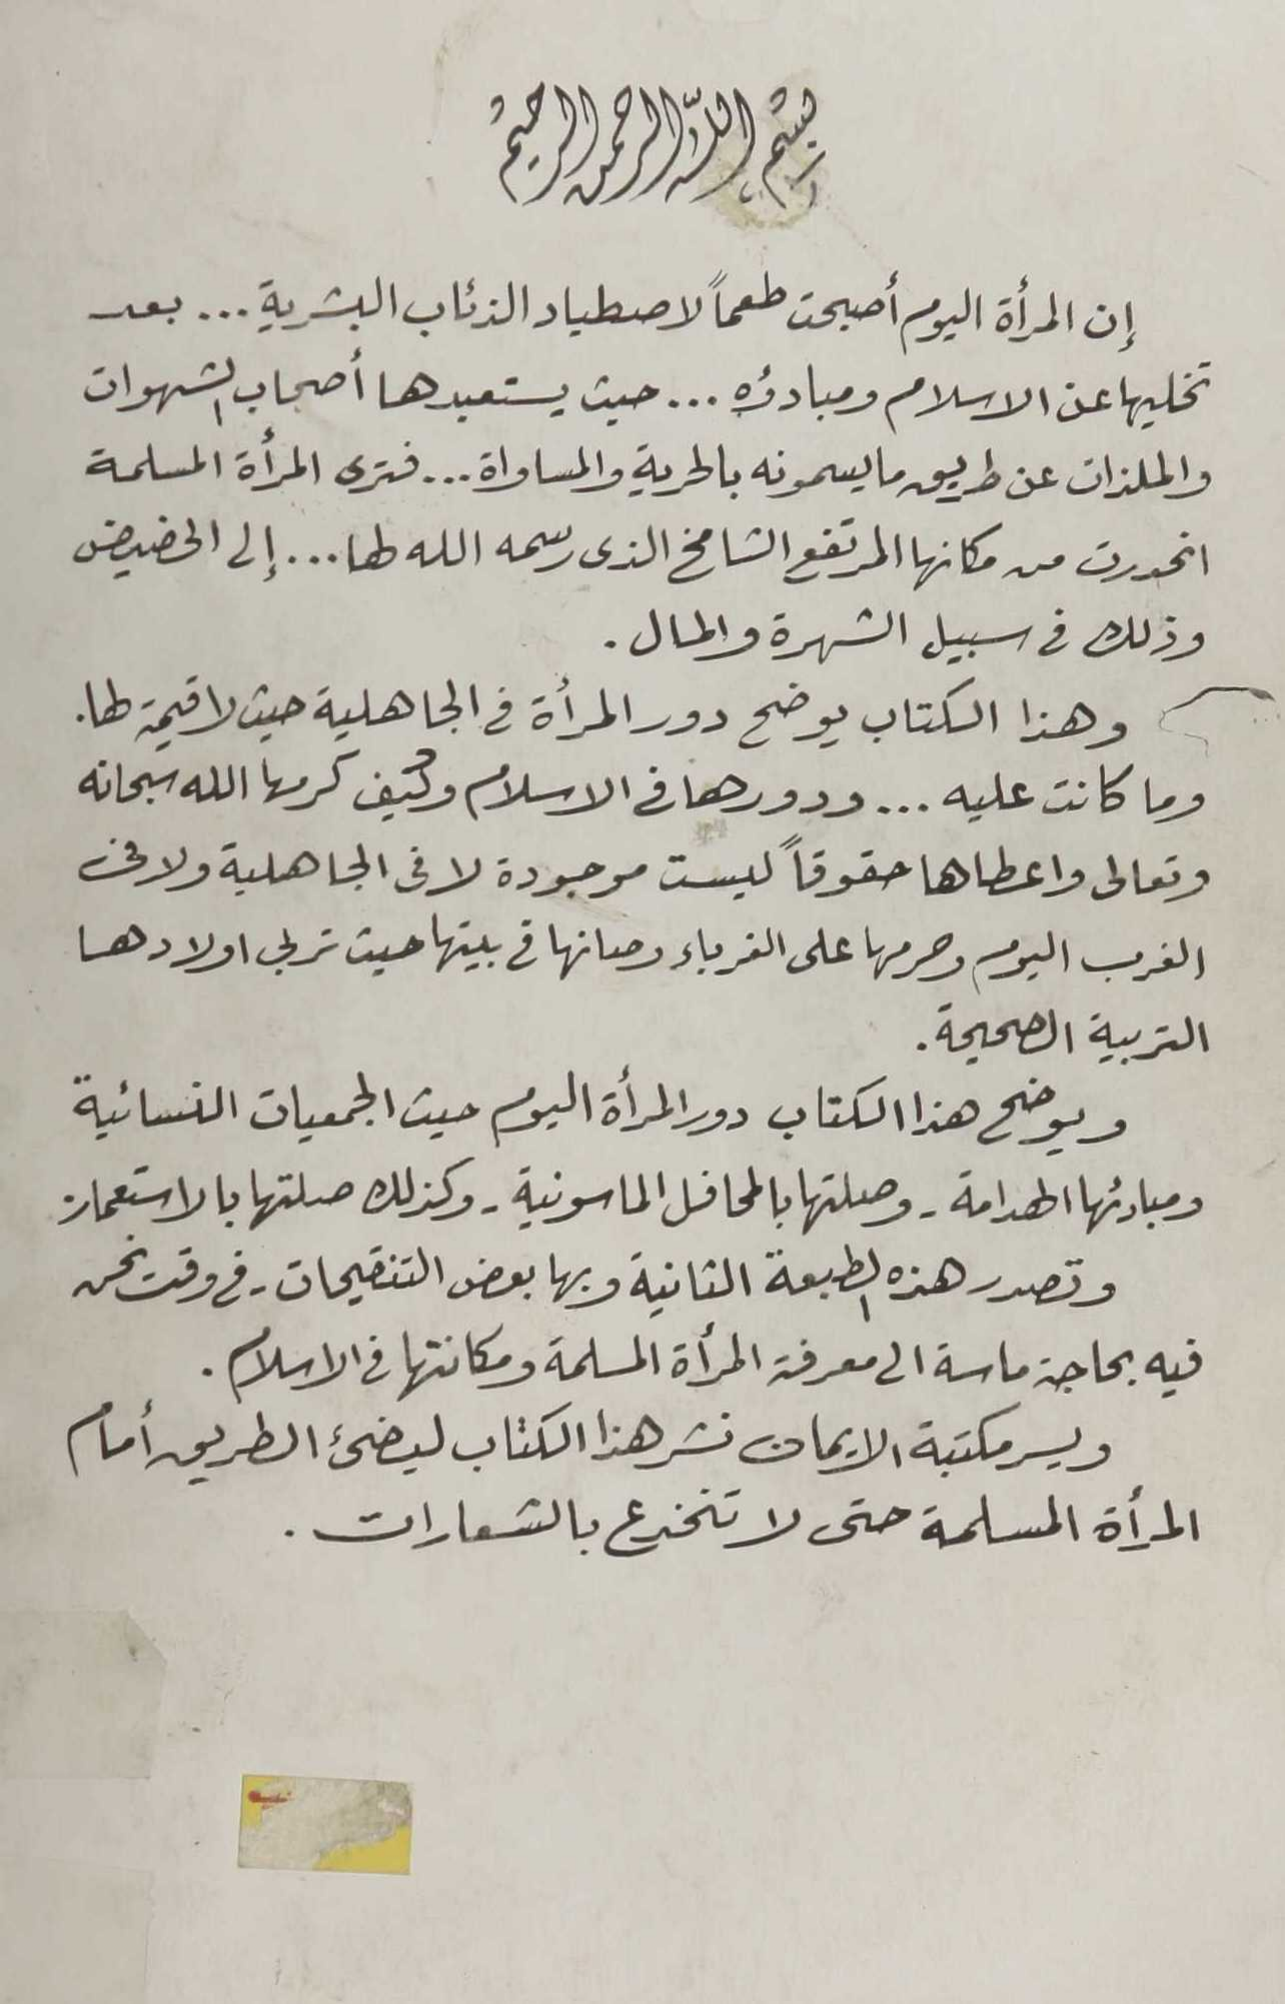 بسم الله الرحمن الرحيم
إن المرأة اليوم أصبحت طعماً لاصطياد الذئاب البشرية ... بعد
تخليها عن الاسلام ومبادؤه ... حيث يستعبدها أصحاب الشهوات
والملذات عن طريق ما يسمونه بالحرية والمساواة ... فترى المرأة المسلمة
انحدرت من مكانها المرتفع الشامخ الذى رسمه الله لها ... إلى الحضيض
وذلك فى سبيل الشهرة والمال .
وهذا الكتاب يوضح دور المرأة فى الجاهلية حيث لا قيمة لها .
وما كانت عليه ... ودورها فى الاسلام وكيف كرمها الله سبحانه
وتعالى واعطاها حقوقاً ليست موجودة لا فى الجاهلية ولا فى
الغرب اليوم وحرمها على الغرباء وصانها فى بيتها حيث تربى اولادها
التربية الصحيحة .
ويوضح هذا الكتاب دور المرأة اليوم حيث الجمعيات النسائية
ومبادئها الهدامة - وصلتها بالمحافل الماسونية - وكذلك صلتها بالاستعمار
وتصدر هذه الطبعة الثانية وبها بعض التنقيحات - فى وقت نحن
فيه بحاجة ماسة الى معرفة المرأة المسلمة ومكانتها فى الاسلام .
ويسر مكتبة الايمان نشر هذا الكتاب ليضئ الطريق أمام
المرأة المسلمة حتى لا تنخدع بالشعارات .